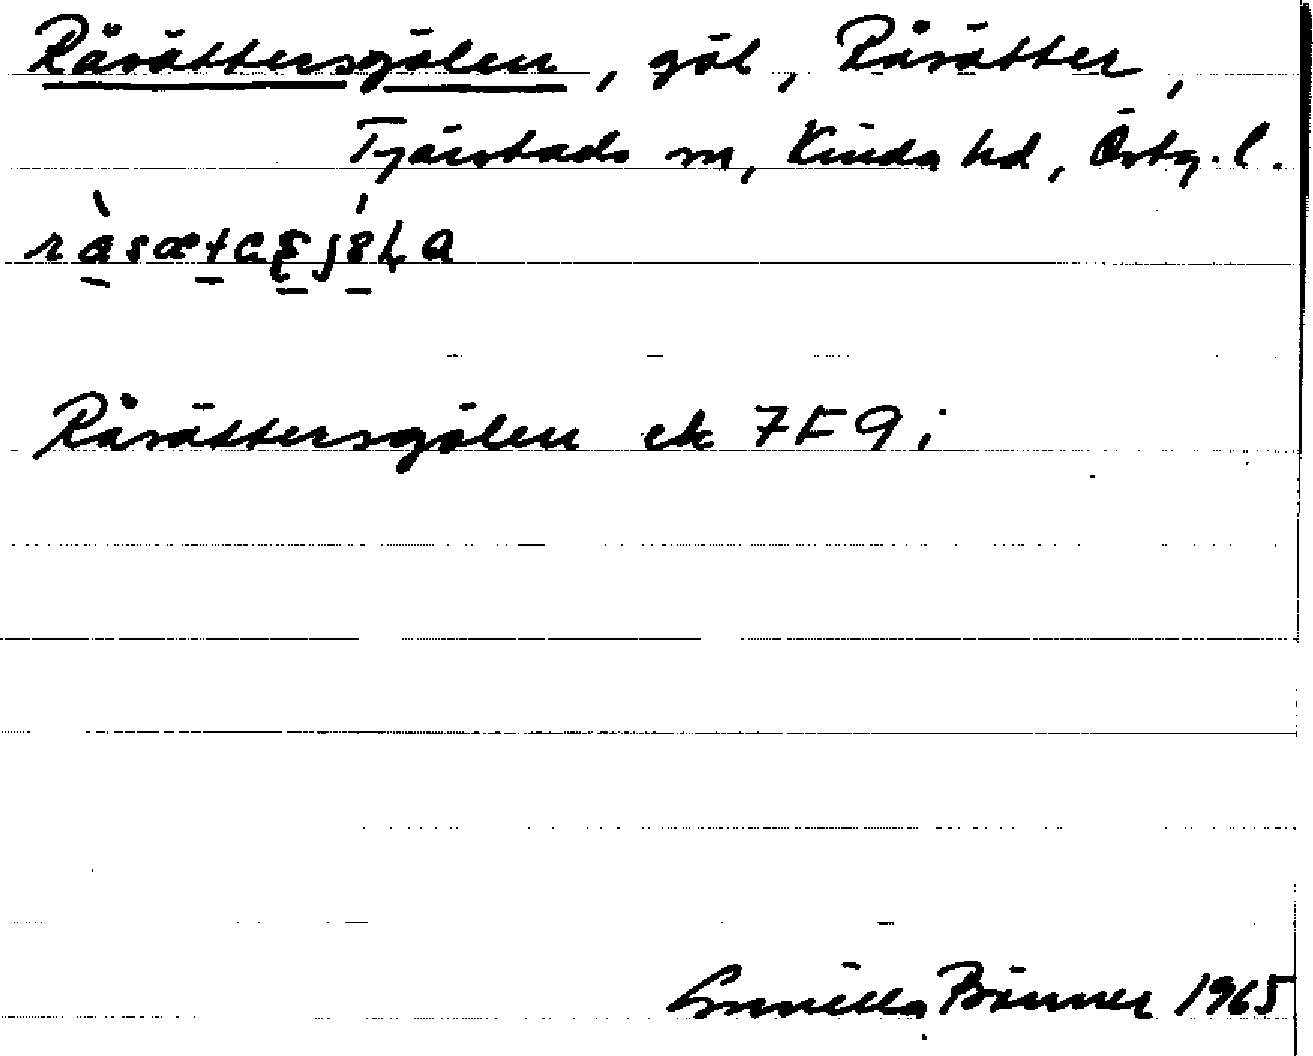 Råsättersgölen, göl, Råsätter,
Tjärstads sn, Kinda hd, Östg. l.
Råsättersgölen ek 7F9i
Gunilla Bänner 1965